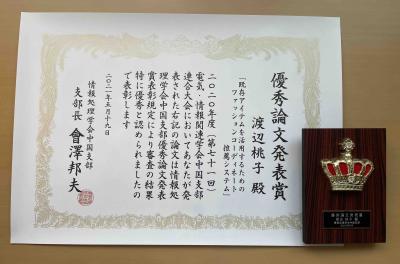 優秀論文発表賞
渡辺桃子 殿
「既存アイテムを活用するための
ファッションコーディネート
推薦システム」
二〇二〇年度(第七十一回)
電気・情報関連学会中国支部
連合大会においてあなたが発
表された右記の論文は情報処
理学会中国支部優秀論文発表
賞表彰規定により審査の結果
特に優秀と認められましたの
で表彰します
二〇二一年五月十九日
情報処理学会中国支部
支部長 會澤邦夫
優秀論文発表賞
渡辺桃子 殿